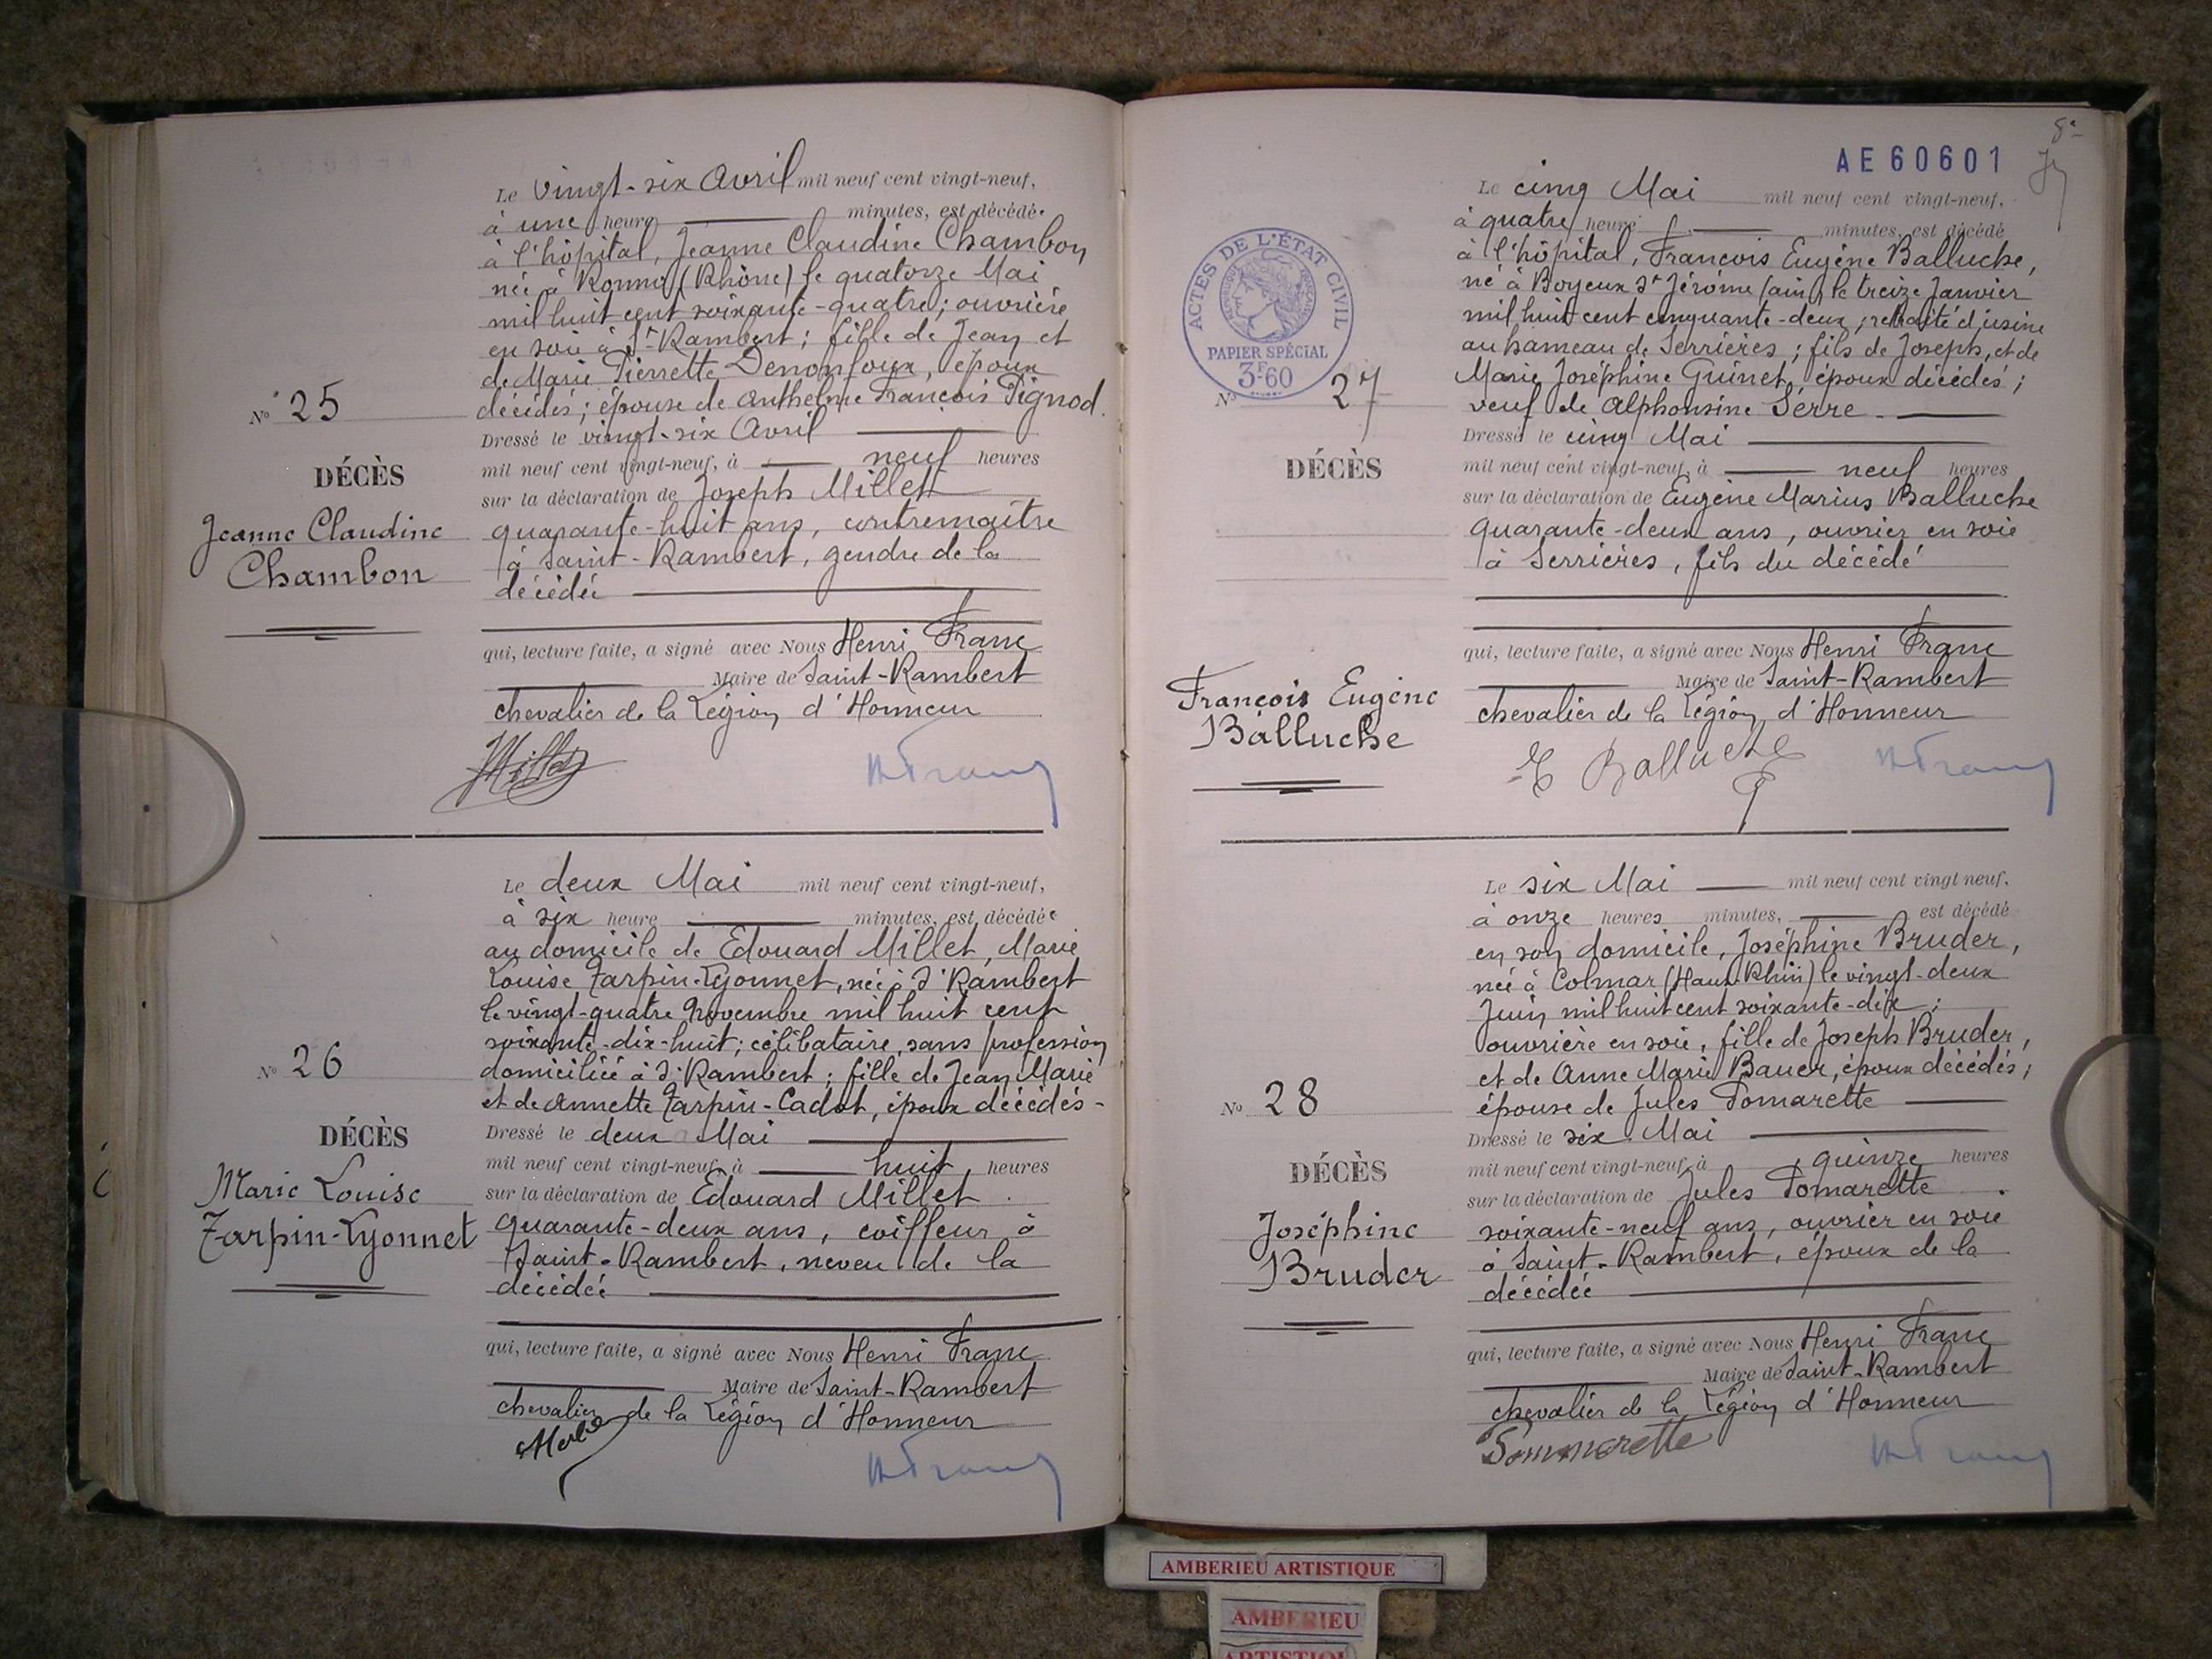 Le vingt-six Avril mil neuf cent vingt-neuf,
à une heure minutes, est décédée
à l'hôpital, Jeanne Claudine Chambon
née à Ronno (Rhône) le quatorze Mai
mil huit cent soixante-quatre; ouvrière
en soie à St-Rambert; fille de Jean et
de Marie Pierrette Denonfoux, époux
décédés; épouse de Anthelme François Pignod.
Dressé le vingt-six Avril
mil neuf cent vingt-neuf, à neuf heures
sur la déclaration de Joseph Millet
quarante-huit ans, contremaître
à Saint-Rambert, gendre de la
décédée
qui, lecture faite, a signé avec Nous Henri Franc
Maire de Saint-Rambert
chevalier de la Légion d'Honneur
N° 25
DÉCÈS
Jeanne Claudine
Chambon
JMillet
HFranc
Le deux Mai mil neuf cent vingt-neuf,
à six heure minutes, est décédée
au domicile de Edouard Millet, Marie
Louise Tarpin-Lyonnet, née à St Rambert
le vingt-quatre Novembre mil huit cent
soixante-dix-huit; célibataire, sans profession
domiciliée à St Rambert; fille de Jean Marie
et de Annette Tarpin-Cadot, époux décédés-
Dressé le deux Mai
mil neuf cent vingt-neuf, à huit heures
sur la déclaration de Edouard Millet
quarante-deux ans, coiffeur à
Saint-Rambert, neveu de la
décédée
qui, lecture faite, a signé avec Nous Henri Franc
Maire de Saint-Rambert
chevalier de la Légion d'Honneur
N° 26
DÉCÈS
Marie Louise
Tarpin-Lyonnet
HFranc
8e
AE60601
Le cinq Mai mil neuf cent vingt-neuf,
à quatre heure minutes, est décédé
à l'hôpital, François Eugène Balluche,
né à Boyeux St Jérôme (ain) le treize Janvier
mil huit cent cinquante-deux; retraité d'usine
au hameau de Serrières; fils de Joseph, et de
Marie Joséphine Guinet, époux décédés;
veuf de Alphonsine Serre
Dressé le cinq Mai
mil neuf cent vingt-neuf, à neuf heures
sur la déclaration de Eugène Marius Balluche
quarante-deux ans, ouvrier en soie
à Serrières, fils du décédé
qui, lecture faite, a signé avec Nous Henri Franc
Maire de Saint-Rambert
chevalier de la Légion d'Honneur
ACTES DE L'ÉTAT CIVIL
PAPIER SPÉCIAL
3F60
N° 27
DÉCÈS
François Eugène
Balluche
E Balluche
HFranc
Le six Mai mil neuf cent vingt neuf,
à onze heures minutes, est décédé
en son domicile, Joséphine Bruder,
née à Colmar (Haut Rhin) le vingt-deux
Juin mil huit cent soixante-dix;
ouvrière en soie, fille de Joseph Bruder,
et de Anne Marie Bauer, époux décédés;
épouse de Jules Pomarette
Dressé le six Mai
mil neuf cent vingt-neuf, à quinze heures
sur la déclaration de Jules Pomarette
soixante-neuf ans, ouvrier en soie
à Saint-Rambert, époux de la
décédée
qui, lecture faite, a signé avec Nous Henri Franc
Maire de Saint-Rambert
chevalier de la Légion d'Honneur
N° 28
DÉCÈS
Joséphine
Bruder
Pommarette
HFranc
AMBERIEU ARTISTIQUE
AMBERIEU
ARTISTIQU